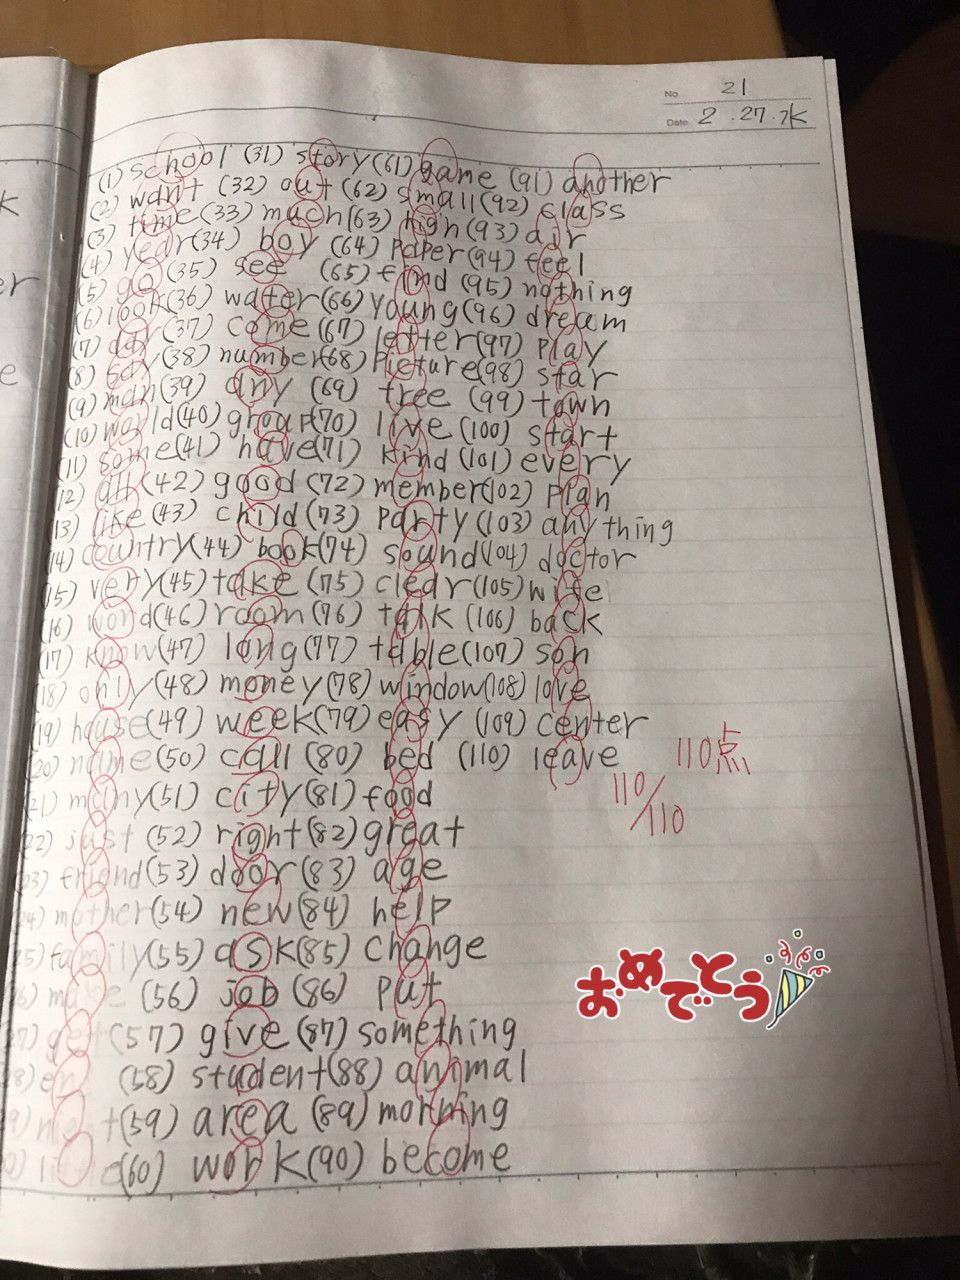 No. 21
Date 2.27.水
(1) school (31) story (61) game (91) another
(2) want (32) out (62) small (92) class
(3) time (33) much (63) high (93) air
(4) year (34) boy (64) paper (94) feel
(5) go (35) see (65) find (95) nothing
(6) look (36) water (66) young (96) dream
(7) day (37) come (67) letter (97) play
(8) say (38) number (68) picture (98) star
(9) man (39) any (69) tree (99) town
(10) world (40) group (70) live (100) start
(11) some (41) have (71) kind (101) every
(12) all (42) good (72) member (102) plan
(13) like (43) child (73) party (103) anything
(14) country (44) book (74) sound (104) doctor
(15) very (45) take (75) clear (105) wife
(16) word (46) room (76) talk (106) back
(17) know (47) long (77) table (107) son
(18) only (48) money (78) window (108) love
(19) house (49) week (79) easy (109) center
(20) name (50) call (80) bed (110) leave
110点
110/110
(21) many (51) city (81) food
(22) just (52) right (82) great
(23) friend (53) door (83) age
(24) mother (54) new (84) help
(25) family (55) ask (85) change
(26) make (56) job (86) put
(27) get (57) give (87) something
(28) en (58) student (88) animal
(29) night (59) area (89) morning
(60) work (90) become
おめでとう